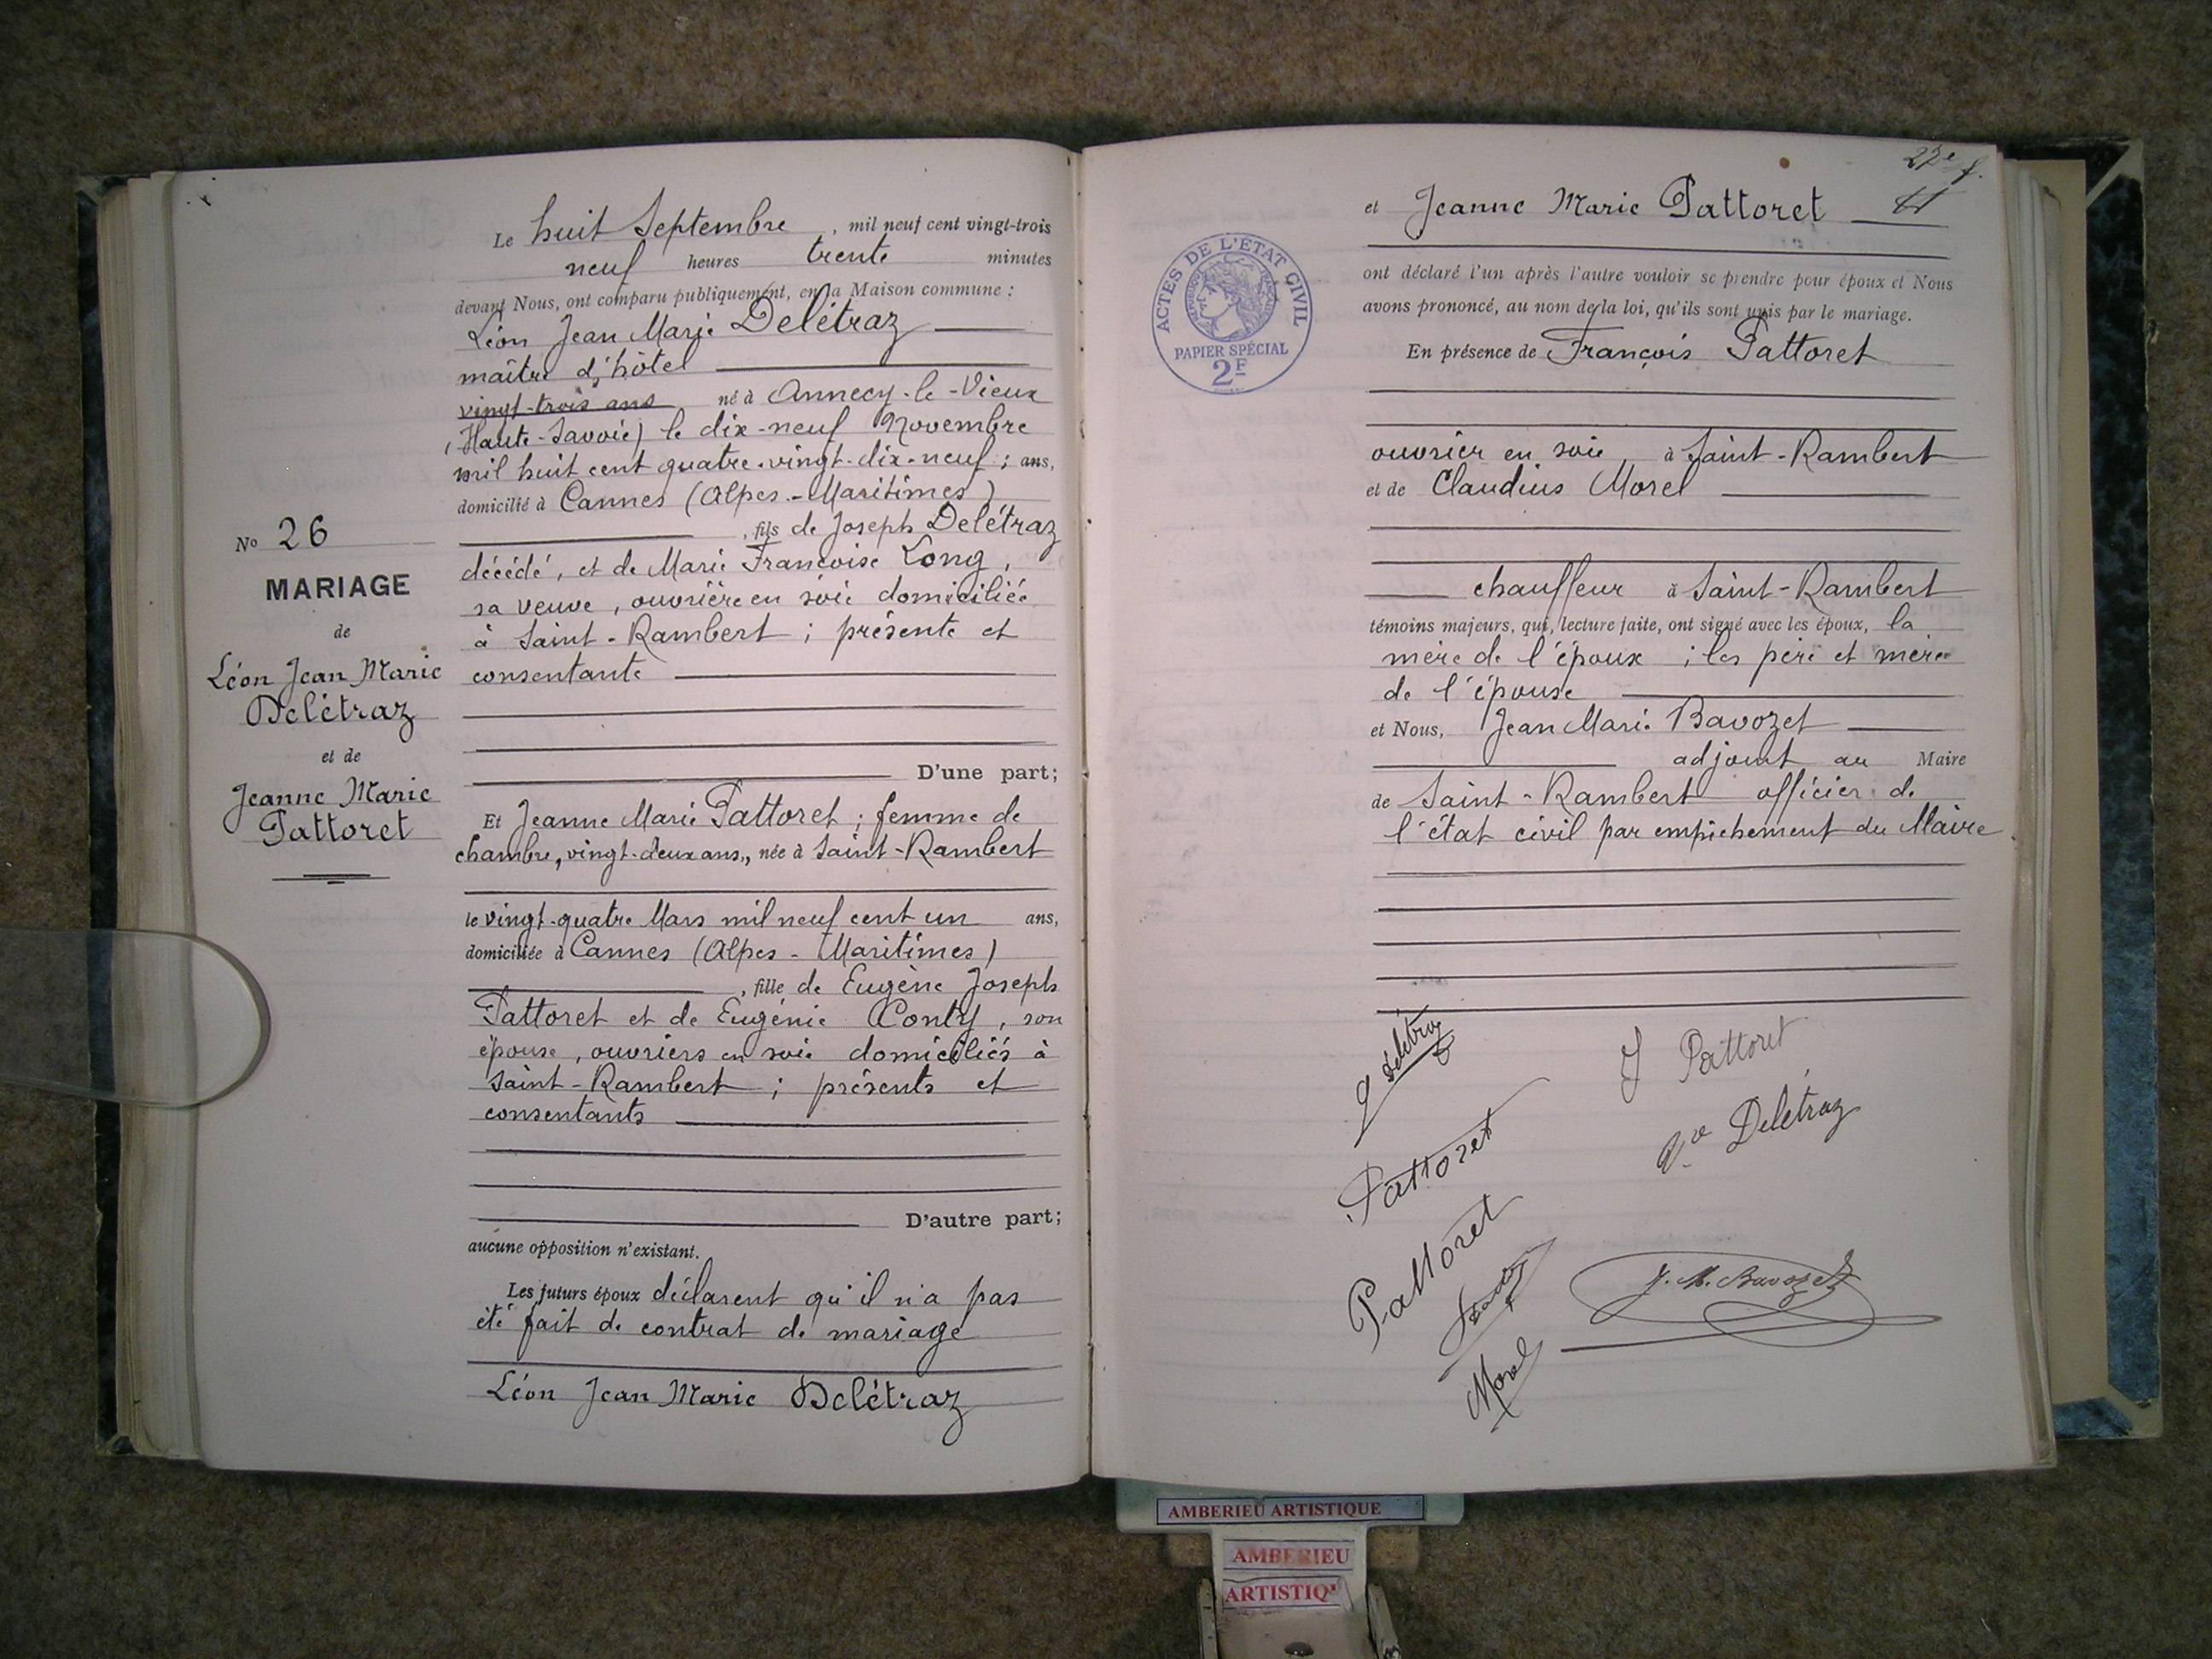 N° 26
MARIAGE
de
Léon Jean Marie
Delétraz
et de
Jeanne Marie
Pattoret
Le huit Septembre, mil neuf cent vingt-trois
neuf heures trente minutes
devant Nous, ont comparu publiquement, en la Maison commune :
Léon Jean Marie Delétraz
maître d'hôtel
vingt-trois ans né à Annecy-le-Vieux
(Haute-Savoie) le dix-neuf Novembre
mil huit cent quatre-vingt-dix-neuf ; ans,
domicilié à Cannes (Alpes-Maritimes)
, fils de Joseph Delétraz
décédé, et de Marie Françoise Long,
sa veuve, ouvrière en soie domiciliée
à Saint-Rambert ; présente et
consentante
D'une part;
Et Jeanne Marie Pattoret ; femme de
chambre, vingt-deux ans, née à Saint-Rambert
le vingt-quatre Mars mil neuf cent un ans,
domiciliée à Cannes (Alpes-Maritimes)
, fille de Eugène Joseph
Pattoret et de Eugénie Conty, son
épouse, ouvriers en soie domiciliés à
Saint-Rambert ; présents et
consentants
D'autre part;
aucune opposition n'existant.
Les futurs époux déclarent qu'il n'a pas
été fait de contrat de mariage
Léon Jean Marie Delétraz
27e f.
et Jeanne Marie Pattoret
ACTES DE L'ÉTAT CIVIL
PAPIER SPÉCIAL
2F
ont déclaré l'un après l'autre vouloir se prendre pour époux et Nous
avons prononcé, au nom de la loi, qu'ils sont unis par le mariage.
En présence de François Pattoret
ouvrier en soie, à Saint-Rambert
et de Claudius Morel
chauffeur à Saint-Rambert
témoins majeurs, qui, lecture faite, ont signé avec les époux, la
mère de l'époux ; les père et mère
de l'épouse
et Nous, Jean Marie Bavozet
adjoint au Maire
de Saint-Rambert officier de
l'état civil par empêchement du Maire
Delétraz
J Pattoret
Ve Delétraz
Pattoret
Pattoret
Morel
J. M. Bavozet
AMBERIEU ARTISTIQUE
AMBERIEU
ARTISTIQ